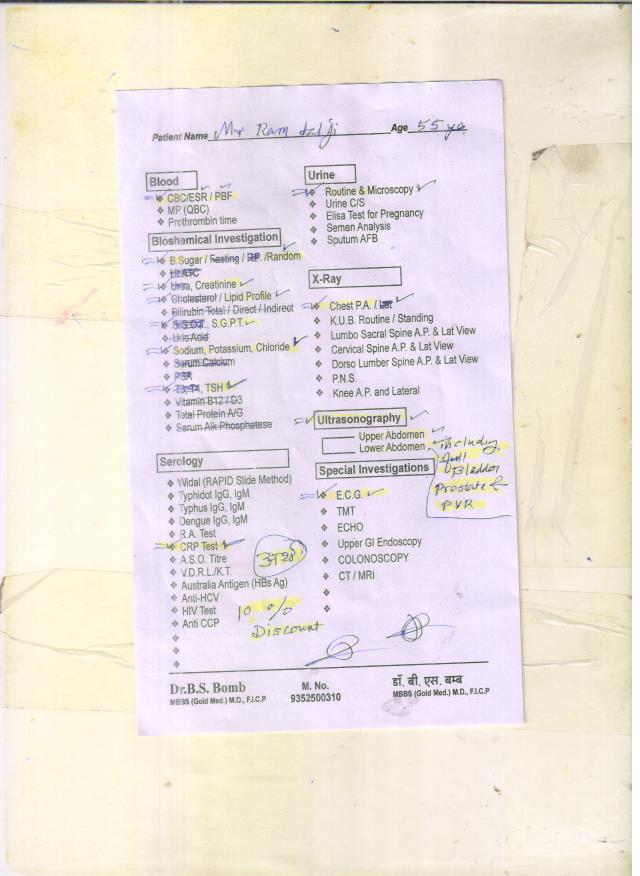 Patient Name Mr Ram Lal ji Age 55 ye
Blood
CBC/ESR / PBF
MP (QBC)
Prothrombin time
Bioshemical Investigation
B.Sugar / Fasting / P.P. /Random
Urea, Creatinine
Cholesterol / Lipid Profile
Bilirubin Total / Direct / Indirect
S.G.O.T., S.G.P.T.
Uric Acid
Sodium, Potassium, Chloride
Serum Calcium
PSA
T3, T4, TSH
Vitamin B12 / D3
Total Protein A/G
Serum Alk Phosphatase
Serology
Widal (RAPID Slide Method)
Typhidot IgG, IgM
Typhus IgG, IgM
Dengue IgG, IgM
R.A. Test
CRP Test
A.S.O. Titre
V.D.R.L./K.T.
Australia Antigen (HBs Ag)
Anti-HCV
HIV Test
Anti CCP
10 %
Discount
Urine
Routine & Microscopy
Urine C/S
Elisa Test for Pregnancy
Semen Analysis
Sputum AFB
X-Ray
Chest P.A. / Lat
K.U.B. Routine / Standing
Lumbo Sacral Spine A.P. & Lat View
Cervical Spine A.P. & Lat View
Dorso Lumber Spine A.P. & Lat View
P.N.S.
Knee A.P. and Lateral
Ultrasonography
Upper Abdomen
Lower Abdomen
including
full
Bladder
Prostate &
PVR
Special Investigations
E.C.G.
TMT
ECHO
Upper GI Endoscopy
COLONOSCOPY
CT / MRI
Dr.B.S. Bomb
MBBS (Gold Med.) M.D., F.I.C.P
M. No.
9352500310
डॉ. बी. एस. बम्ब
MBBS (Gold Med.) M.D., F.I.C.P